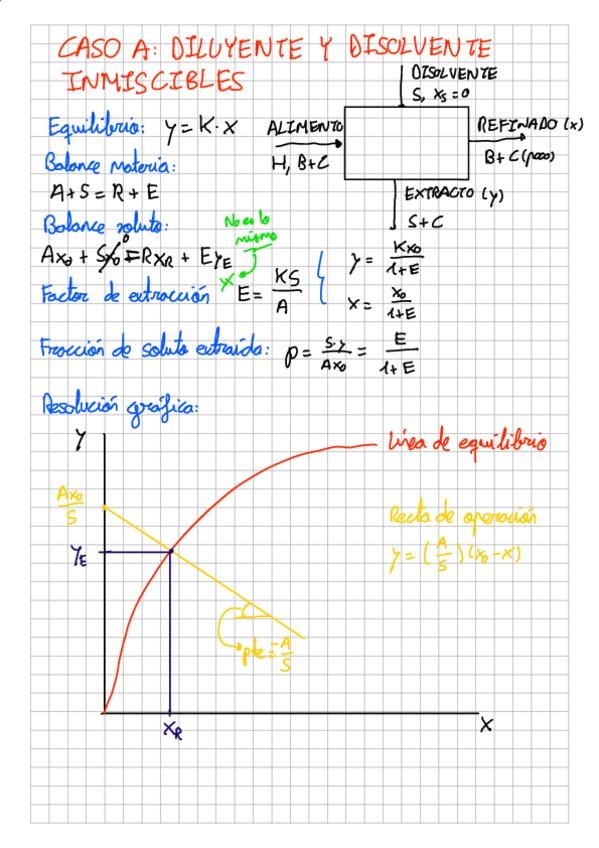 CASO A: DILUYENTE Y DISOLVENTE
INMISCIBLES
DISOLVENTE
S, xs=0
Equilibrio: y=K·x
ALIMENTO
H, B+C
REFINADO (x)
B+C(poco)
EXTRACTO (y)
S+C
Balance materia:
A+S=R+E
Balance soluto:
No es lo
mismo
Ax0 + Sx0 = RxR + EyE
0
Factor de extracción E= KS/A
y= Kx0/1+E
x= x0/1+E
Fracción de soluto extraída: p= S·y/Ax0 = E/1+E
Resolución gráfica:
Y
Línea de equilibrio
Ax0/S
Recta de operación
y=(A/S)(x0-x)
YE
pte=-A/S
XR
X